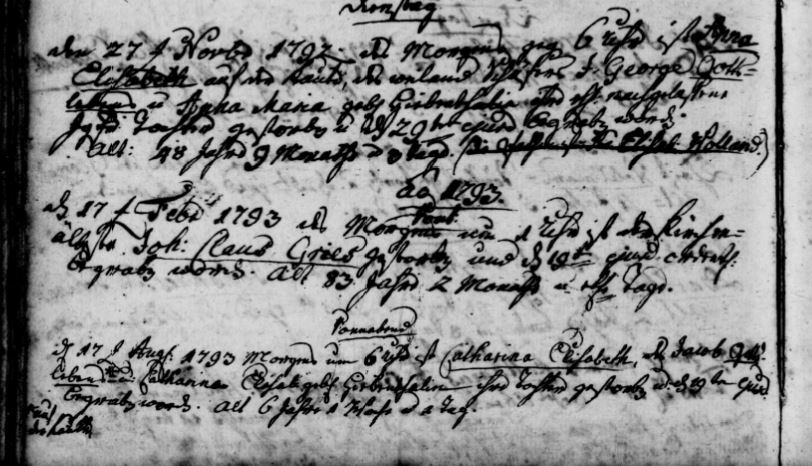 Dienstag
den 27 t Novbr 1792 des Morgens geg 6 Uhr ist Anna
Elisabeth auf der Haute, des weiland George Gott=
lebens u Anna Maria geb.
Tochter gestorben u d 29ten ejusd begraben word.
Alt: 48 Jahr 9 Monathe u 3 Tage Elisab. Holland)
ao 1793.
d. 17 t Febr 1793 des Morgens um 1 Uhr ist der Kirchen=
älteste Joh: Claus Gries gestorben und d 19t ejusd.
begraben worden. Alt 83 Jahr 2 Monathe u elf Tage.
Sonnabend
d 17 t Aug. 1793 Morgens um 6 Uhr ist Catharina Elisabeth, des Jacob Gott=
lebens u. Catharina Elisab. geb. ihre Tochter gestorben u. d 19ten ejusd.
begraben word. Alt 6 Jahr 1 Woche u 2 Tag.